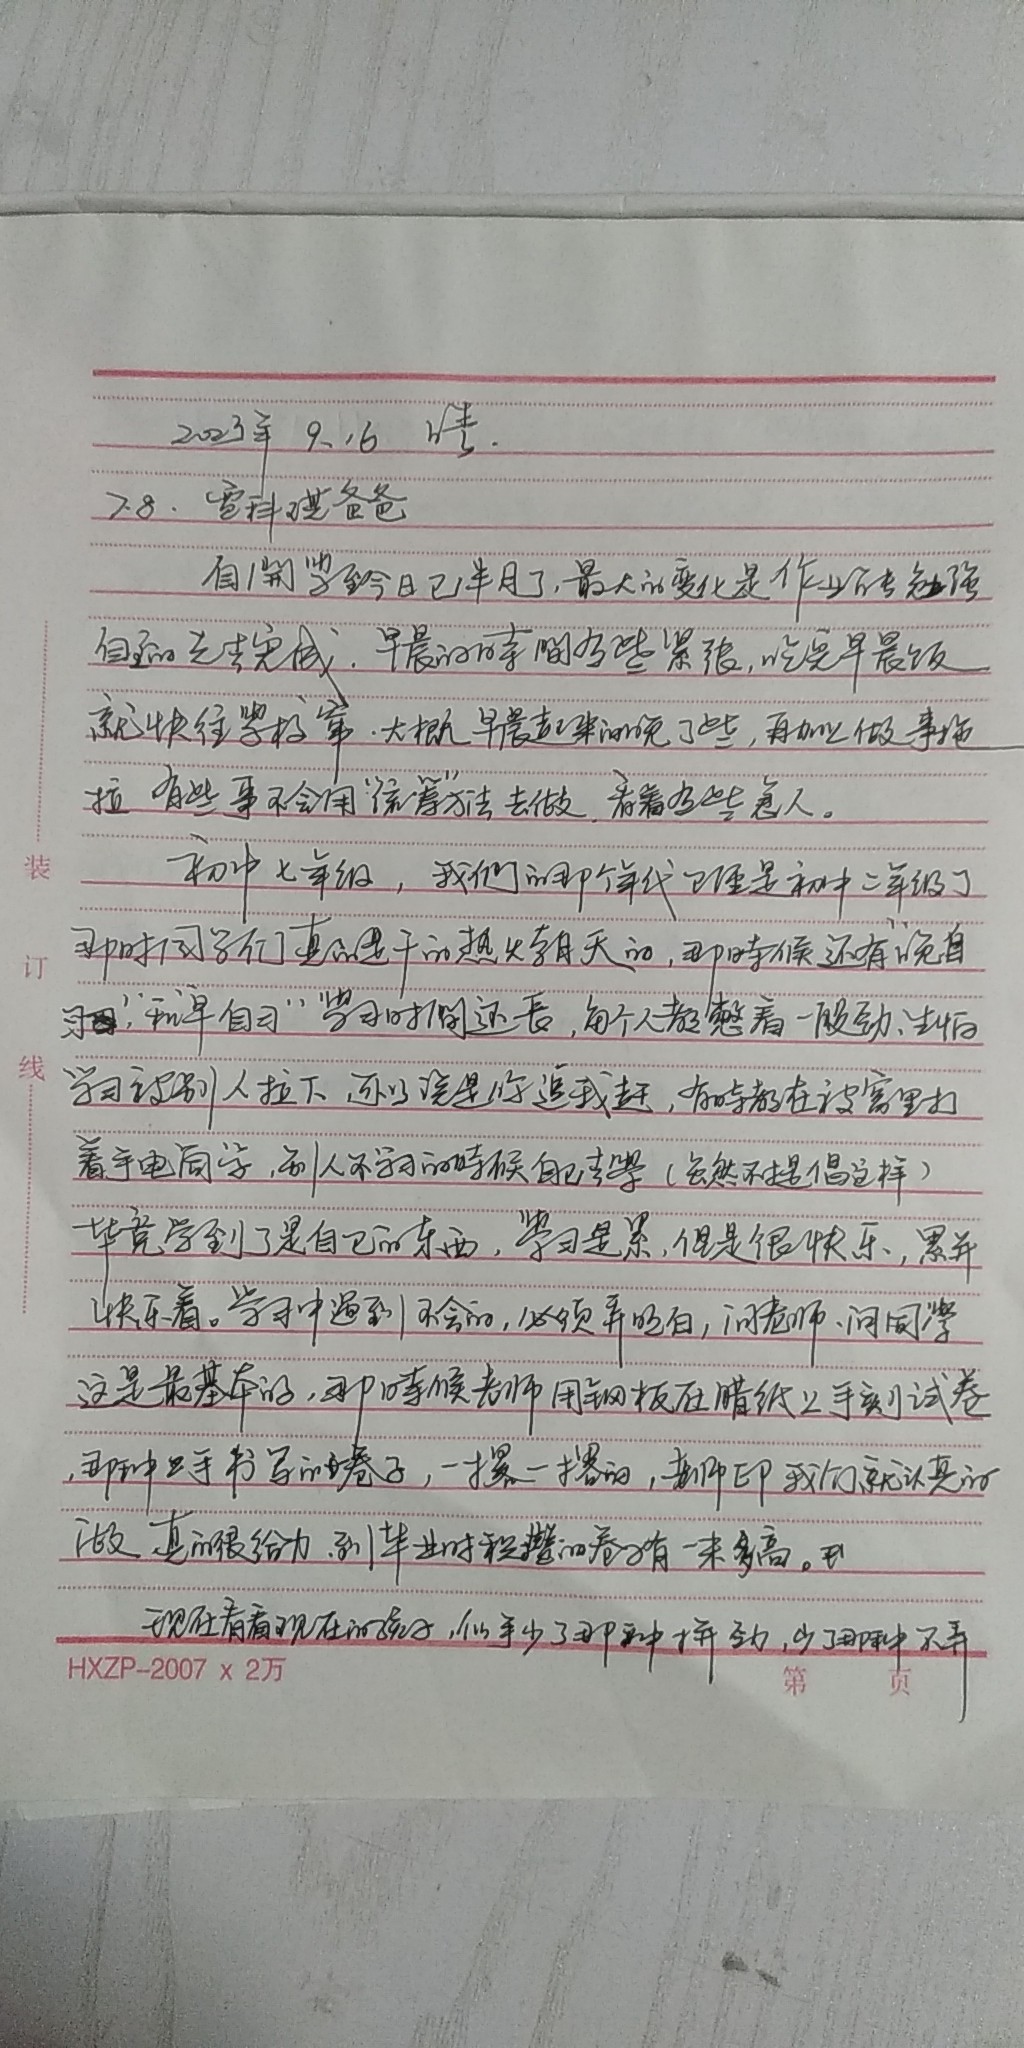 2023年 9.16 晴.
7.8. 雷科琪爸爸
自開学至今日已半月了,最大的变化是作业能勉强
自主的去完成.早晨的時間有些紧張,吃完早晨饭
就快往學校奔.大概早晨起来的晚了些,再加上做事拖
拉 有些事不会用“统筹”方法去做,看着有些急人。
初中七年级,我們的那个年代已经是初中二年级了
那时同学们真的是干的热火朝天的,那時候还有“晚自
习”,“和早自习”學习时間还长,每个人都憋着一股劲、生怕
学习被别人拉下,所以说是你追我赶,有時都在被窝里打
着手电同学,别人不学习的時候自己去學(虽然不提倡这样)
毕竟学到了是自己的东西,學习是累,但是很快乐,累并
快乐着。学习中遇到不会的,必须弄明白,问老师、问同學
这是最基本的,那時候老师用钢板在腊纸上手刻试卷
,那种手书写的卷子,一摞一摞的,老师印我们就认真的
做 真的很给力.到毕业时积攒的卷子有一米多高。
现在看看现在的孩子,似乎少了那种拼劲,少了那种不弄
装
订
线
HXZP-2007 x 2万
第 页